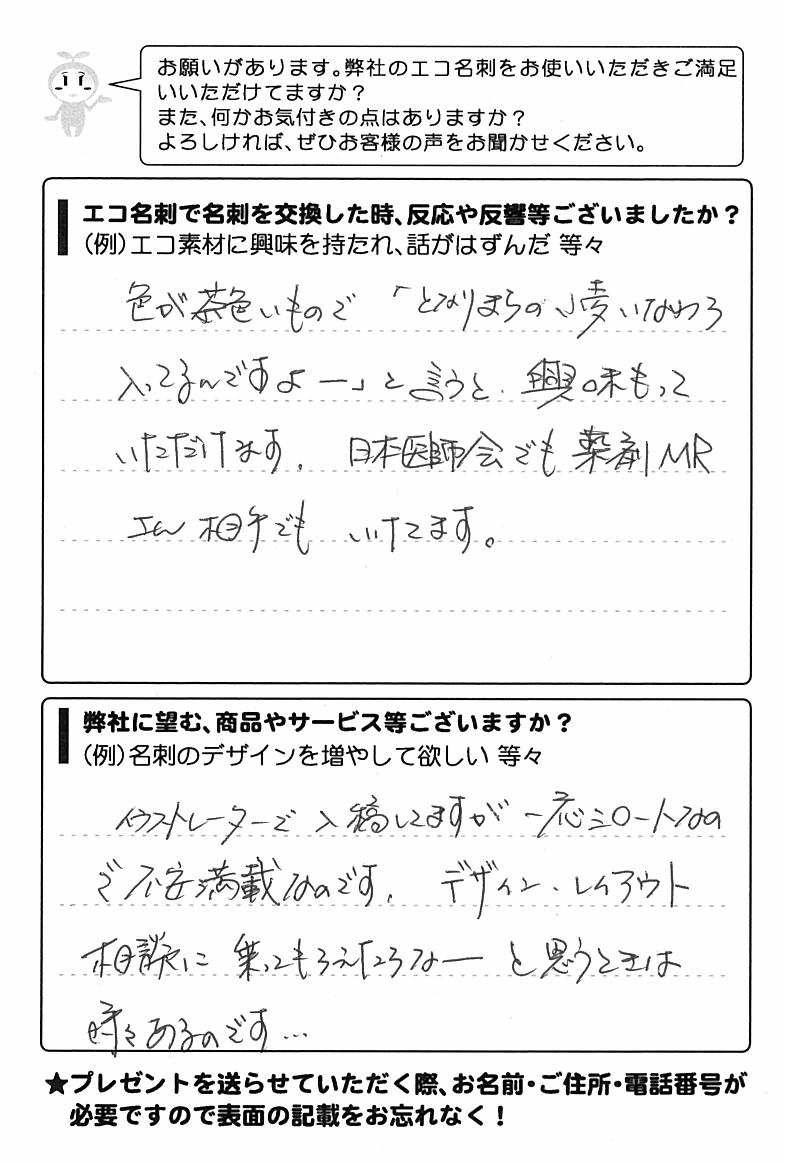 お願いがあります。弊社のエコ名刺をお使いいただきご満足
いいただけてますか?
また、何かお気付きの点はありますか?
よろしければ、ぜひお客様の声をお聞かせください。
エコ名刺で名刺を交換した時、反応や反響等ございましたか?
(例)エコ素材に興味を持たれ、話がはずんだ 等々
色が茶色いもので 「となりまちの
入ってるんですよー」と言うと、興味もって
いただけます。 日本医師会でも 薬剤MR
さん相手でも いけてます。
弊社に望む、商品やサービス等ございますか?
(例)名刺のデザインを増やして欲しい 等々
イラストレーターで入稿してますが 一応シロートなの
で不安満載なのです。 デザイン・レイアウト
相談に 乗ってもらえたらなー と思うときは
時々あるのです…
★プレゼントを送らせていただく際、お名前・ご住所・電話番号が
必要ですので表面の記載をお忘れなく!